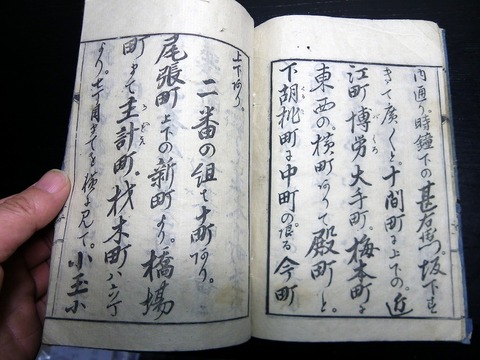 内通り。時鐘下の甚右衛門。坂下
きて廣くと。十間町に上下の。近
江町博労大手町。梅本町に
東西の。横町ありて殿町と。
下胡桃町に中町の。限る今町
上下あり。
二番の組て十町あり。
尾張町上下の新町より。橋場
町きて主計町。材木町ハ六丁
より。七丁目きてを横に見て。小